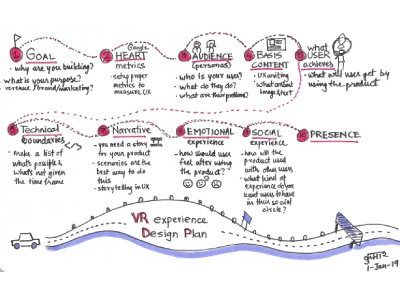 1 GOAL
- why are you building?
- what is your purpose?
- revenue / brand/marketing?
2 Google
HEART
metrics
- setup proper
metrics to
measure UX
3 AUDIENCE
(personas)
- who is your user?
- what do they do?
- what are their problems?
4 BASIS
CONTENT
- UX writing
- what content
image & text
5 what
USER
achieves
- what will user get by
using the product
6 Technical
boundaries </>
- make a list of
what's possible &
what's not given
the time frame
7 Narrative
- you need a story
for your product
- scenarios are the
best way to do
this
- story telling in UX
8 EMOTIONAL
experience
- how should user
feel after using
the product?
9 SOCIAL
experience
- how will the
product used
with other users
- what kind of
experience do you
want users to have
in their social
circle?
10 PRESENCE
VR experience
Design Plan
1-Jan-19